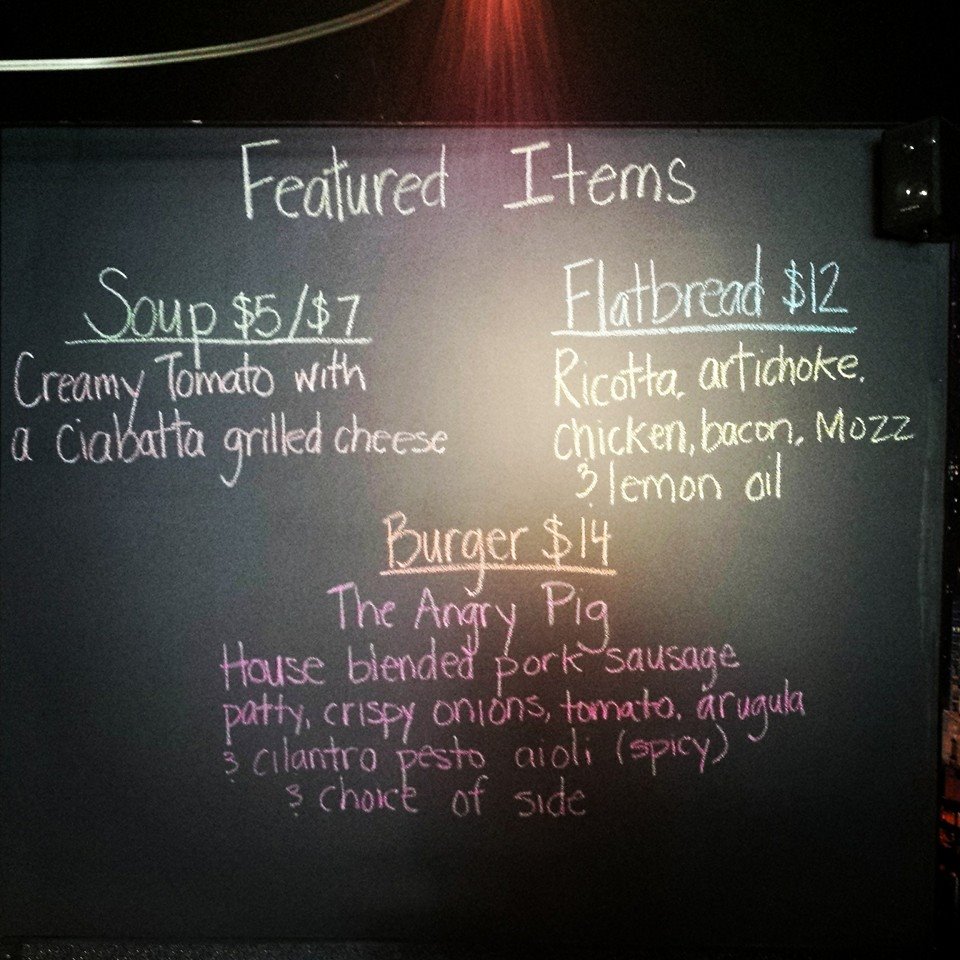 Featured Items
Soup $5/$7
Creamy Tomato with
a Ciabatta grilled cheese
Flatbread $12
Ricotta, artichoke,
chicken, bacon, Mozz
& lemon oil
Burger $14
The Angry Pig
House blended pork sausage
patty, crispy onions, tomato, arugula
& cilantro pesto aioli (spicy)
& choice of side